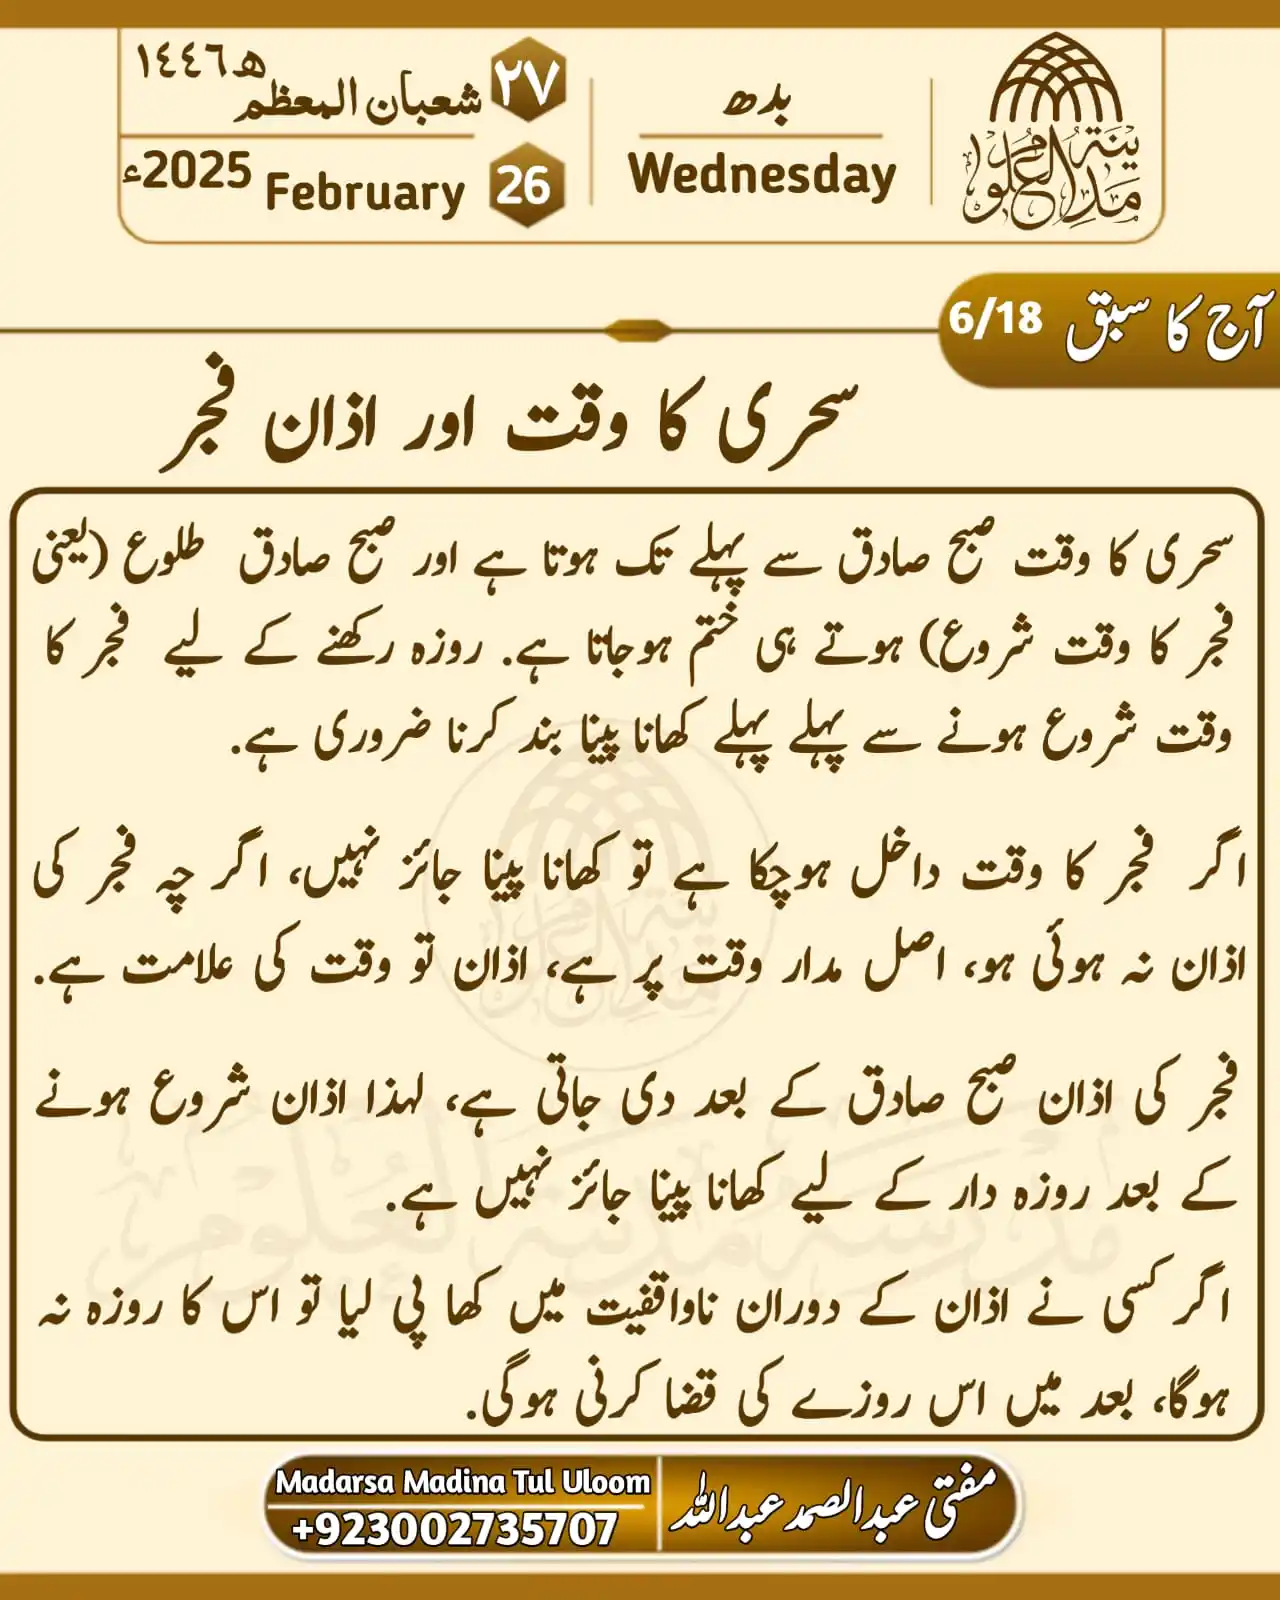 مدینۃ العلوم
بدھ
Wednesday
٢٧ شعبان المعظم ١٤٤٦ھ
26 February 2025ء
آج کا سبق 6/18
سحری کا وقت اور اذان فجر
سحری کا وقت صبح صادق سے پہلے تک ہوتا ہے اور صبح صادق طلوع (یعنی
فجر کا وقت شروع) ہوتے ہی ختم ہوجاتا ہے. روزہ رکھنے کے لیے فجر کا
وقت شروع ہونے سے پہلے پہلے کھانا پینا بند کرنا ضروری ہے.
اگر فجر کا وقت داخل ہوچکا ہے تو کھانا پینا جائز نہیں، اگر چہ فجر کی
اذان نہ ہوئی ہو، اصل مدار وقت پر ہے، اذان تو وقت کی علامت ہے.
فجر کی اذان صبح صادق کے بعد دی جاتی ہے، لہذا اذان شروع ہونے
کے بعد روزہ دار کے لیے کھانا پینا جائز نہیں ہے.
اگر کسی نے اذان کے دوران ناواقفیت میں کھا پی لیا تو اس کا روزہ نہ
ہوگا، بعد میں اس روزے کی قضا کرنی ہوگی.
مدرسة مدينة العلوم
مفتی عبدالصمد عبداللہ
Madarsa Madina Tul Uloom
+923002735707